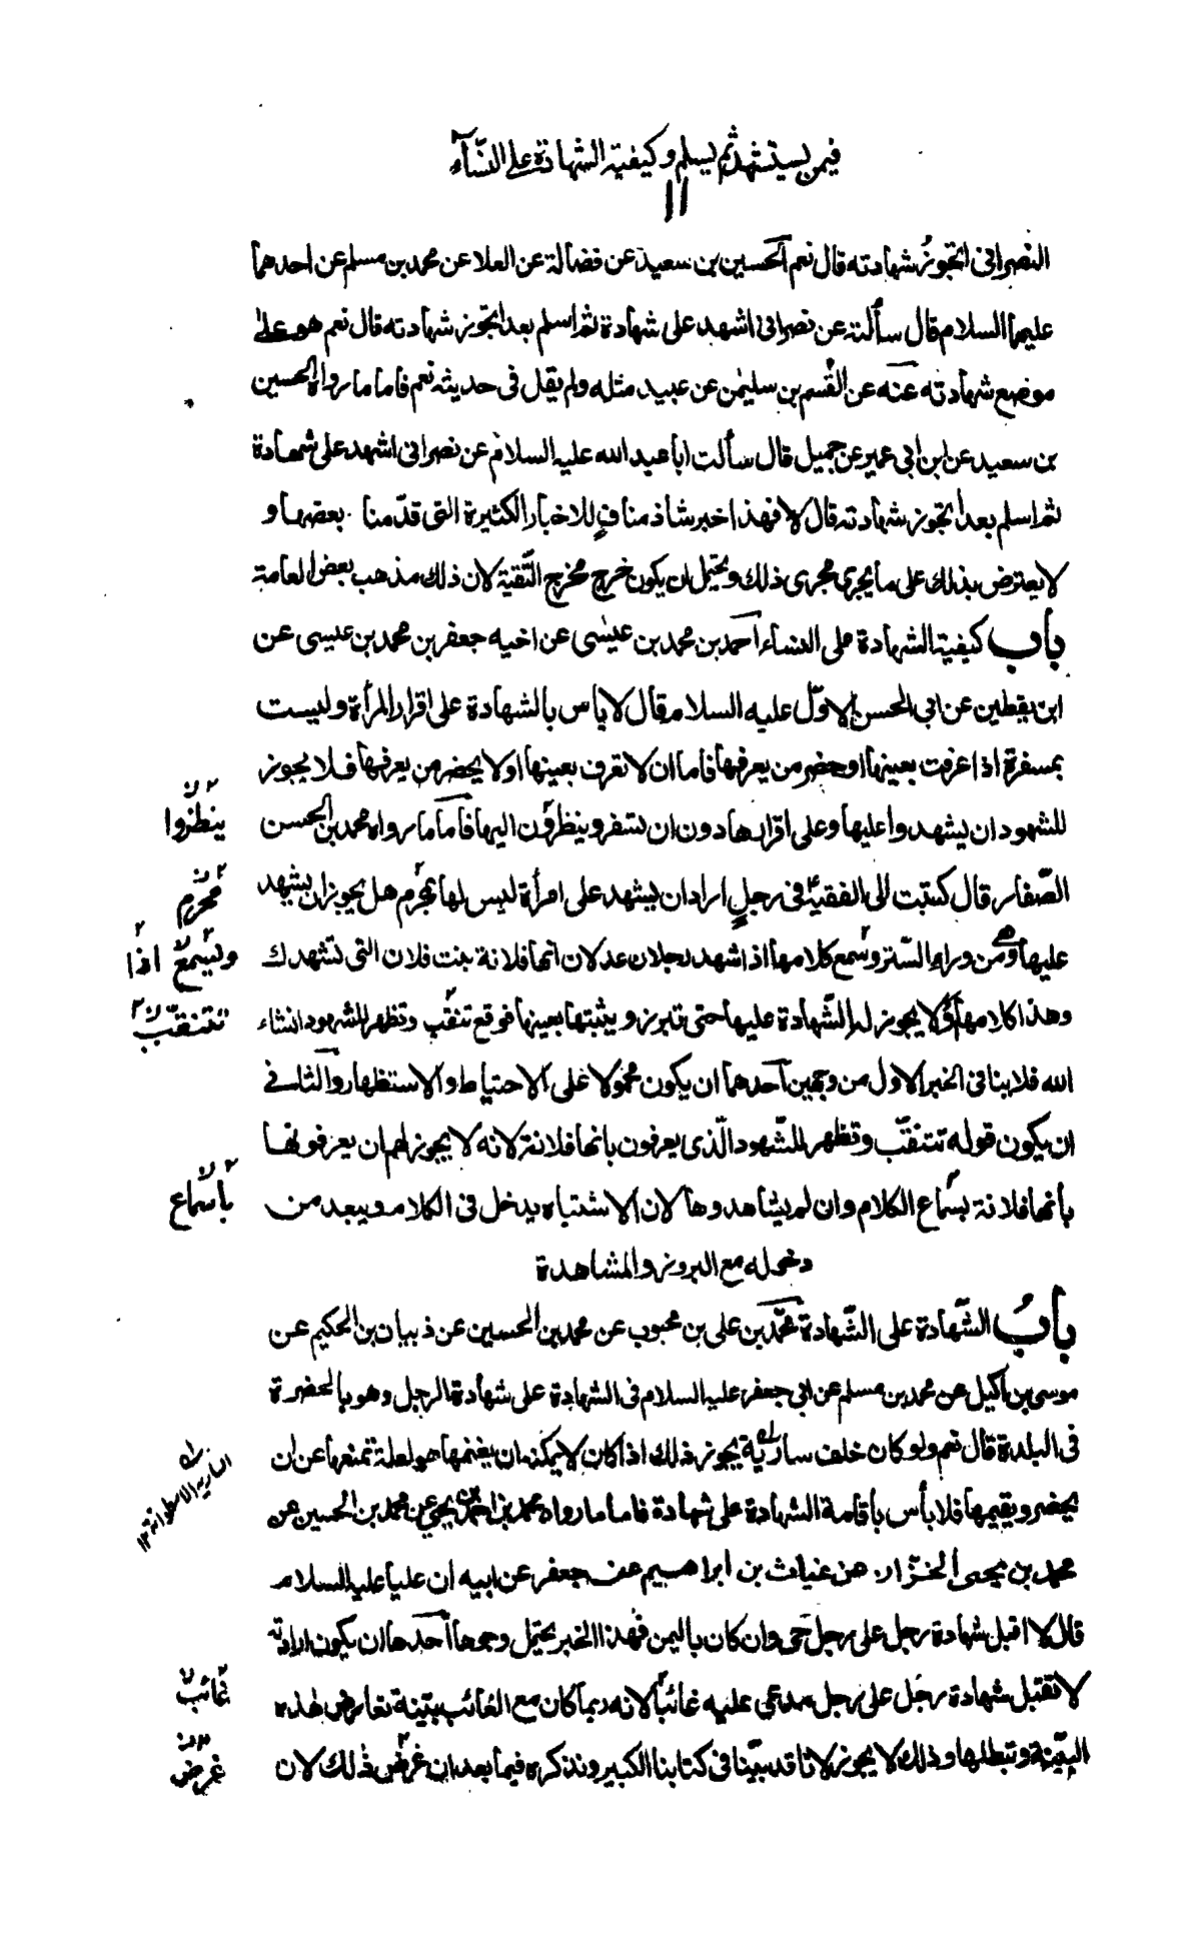 فيمن يستشهد ثم يسلم وكيفية الشهادة على النسآء
١١
النصراني اتجوز شهادته قال نعم الحسين بن سعيد عن فضالة عن العلا عن محمد بن مسلم عن احدهما
عليهما السلام قال سألته عن نصراني اشهد على شهادة ثم اسلم بعد اتجوز شهادته قال نعم هو على
موضع شهادته عنه عن القسم بن سليمن عن عبيد مثله ولم يقل في حديثه نعم فاما ما رواه الحسين
بن سعيد عن ابن ابي عمير عن جميل قال سألت ابا عبد الله عليه السلام عن نصراني اشهد على شهادة
ثم اسلم بعد اتجوز شهادته قال لا فهذا خبر شاذ منافٍ للاخبار الكثيرة التي قدّمنا بعضها و
لا يعترض بذلك على ما يجرى مجرى ذلك ويحتمل ان يكون خرج مخرج التّقية لان ذلك مذهب بعض العامة
باب كيفية الشهادة على النساء احمد بن محمد بن عيسى عن اخيه جعفر بن محمد بن عيسى عن
ابن يقطين عن ابي الحسن الاوّل عليه السلام قال لا باس بالشهادة على اقرار المرأة وليست
بمسفرة اذا عرفت بعينها او حضر من يعرفها فاما ان لا تعرف بعينها او لا يحضر من يعرفها فلا يجوز
للشهود ان يشهدوا عليها وعلى اقرارها دون ان تسفر وينظرون اليها فأما ما رواه محمد بن الحسن
ينظروا
الصّفار قال كتبت الى الفقيه ع في رجلٍ اراد ان يشهد على امرأة ليس لها بمحرم هل يجوز ان يشهد
محرم
عليها ومن وراء السّتر وسمع كلامها اذا شهد رجلان عدلان انها فلانة بنت فلان التي تشهدك
ويسمع اذا
وهذا كلامها او لا يجوز له الشّهادة عليها حتى تبرز ويثبتها بعينها فوقع تنقب وتظهر للشهود انشاء
تتنقب
الله فلا ينافي الخبر الاول من وجهين احدهما ان يكون محمولا على الاحتياط والاستظهار والثاني
ان يكون قوله تتنقّب وتظهر للشّهود الّذي يعرفون بانها فلانة لانه لا يجوز لهم ان يعرفوها
بأنها فلانة بسماع الكلام وان لم يشاهدوها لان الاشتباه يدخل في الكلام ويبعد من
بأسماع
دخوله مع البروز والمشاهدة
بابُ الشّهادة على الشّهادة محمّد بن علي بن محبوب عن محمد بن الحسين عن ذبيان بن الحكيم عن
موسى بن اكيل عن محمد بن مسلم عن ابي جعفر عليه السلام في الشهادة على شهادة الرجل وهو بالحضرة
في البلدة قال نعم ولو كان خلف سارية يجوز ذلك اذا كان لا يمكنه ان يقيمها هو لعلة تمنعها عن ان
يحضر ويقيمها فلا بأس بأقامة الشهادة على شهادة فاما ما رواه محمد بن احمد بن يحيى عن محمد بن الحسين عن
السارية الاسطوانة ١٢
محمد بن يحيى الخزّاز عن غياث بن ابراهيم عن جعفر عن ابيه ان عليا عليه السلام
قال لا اقبل شهادة رجل على رجل حى وان كان باليمن فهذا الخبر يحتمل وجوها احدها ان يكون اراد ته
لا تقبل شهادة رجل على رجل مدعي عليه غائباً لانه ربما كان مع الغائب بيّنة تعارض هذه
غائب
البيّنة وتبطلها وذلك لا يجوز لانا قد بيّنا في كتابنا الكبير ونذكره فيما بعد ان غرض ذلك لان
غرض